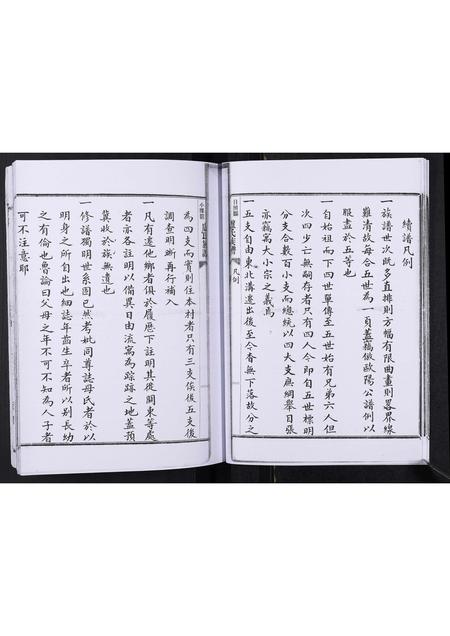 續譜凡例
一族譜世次既多直排則方幅有限曲畫則畧界線
難清故每合五世為一頁蓋竊倣歐陽公譜例以
服盡於五等也
一自始祖而下四世單傳至五世始有兄弟六人但
次四步亡無嗣存者只有四人今即自五世標明
分支合數百小支而總統以四大支庶綱舉目張
亦竊寓大小宗之義焉
一五支自由東北溝遷出後至今杳無下落故分之
凡例
為四支而實則住本村者只有三支俟後五支後
調查明晰再行補入
一凡有遷他鄉者俱於履歷下註明其後關東等處
者亦各註明以備異日由流寓為踪跡之地蓋預
冀收於族無遺也
一修譜獨明世系固已然考妣同尊誌母氏者於以
明身之所自出也細誌年齒生卒者所以別長幼
之有倫也魯論曰父母之年不可不知為人子者
可不注意耶